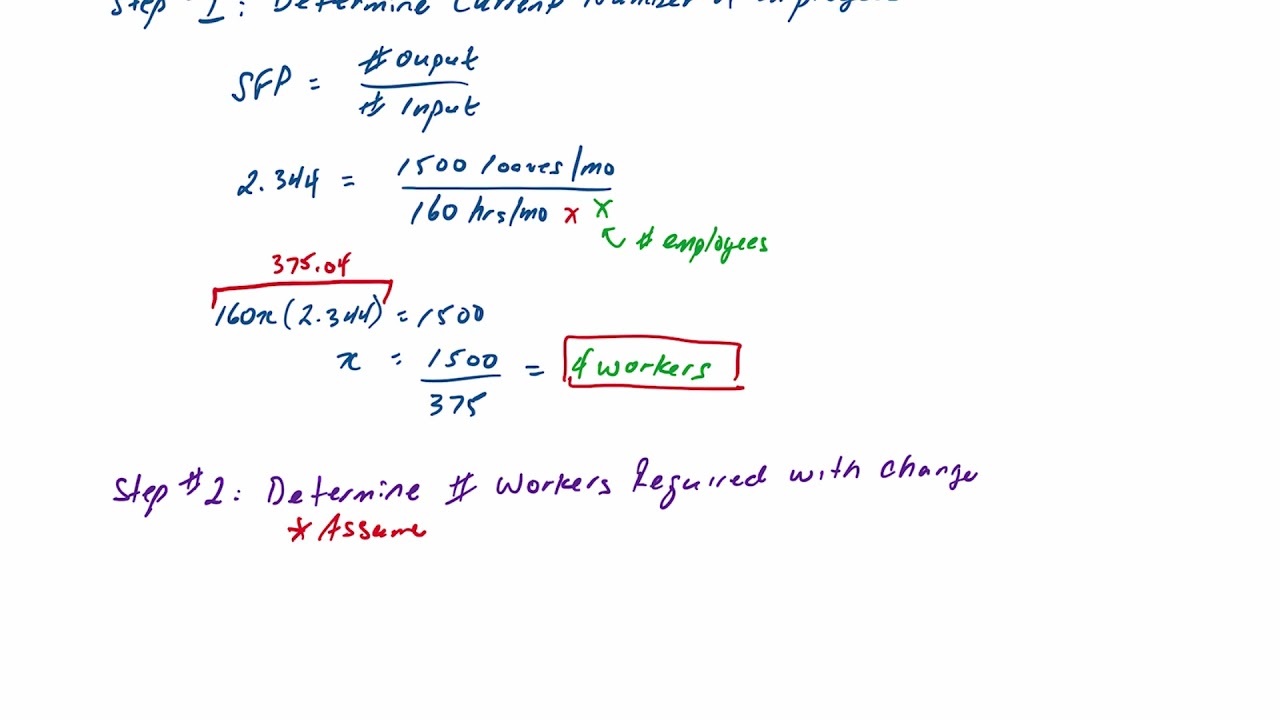 Step #1: Determine Current Number of Employees
SFP = # Ouput / # Input
2.344 = 1500 loaves/mo / 160 hrs/mo x x
# employees
375.04
160x(2.344) = 1500
x = 1500 / 375 = 4 workers
Step #2: Determine # Workers Required with change
* Assume